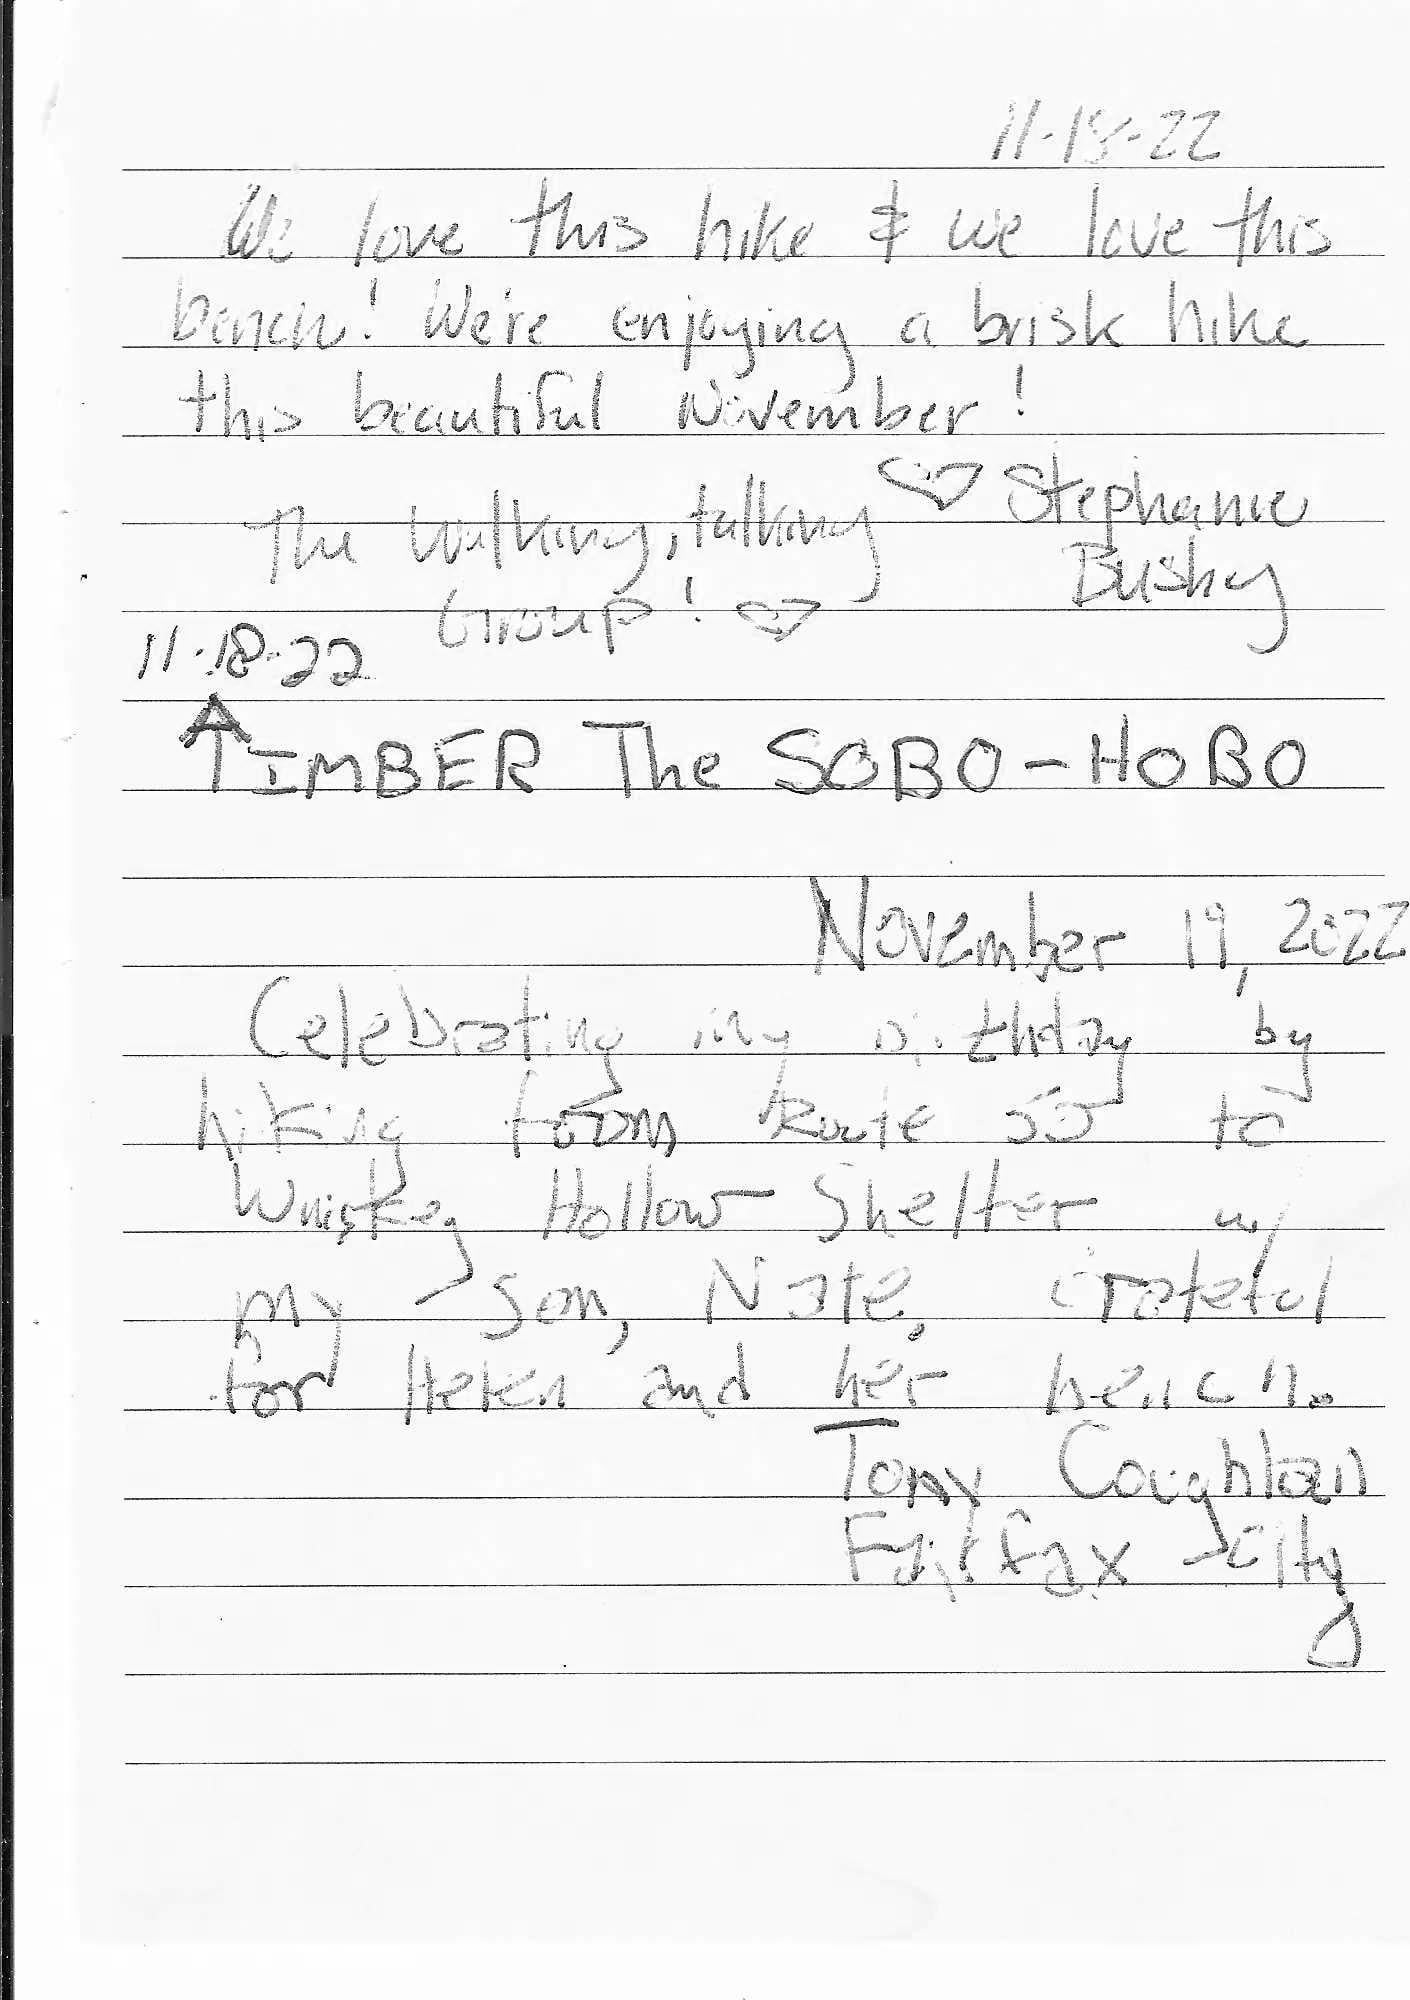 11-18-22
We love this hike & we love this
bench! We're enjoying a brisk hike
this beautiful November!
♡ Stephanie
The Walking, talking
Bushy
Group! ♡
11-18-22
TIMBER The SOBO-HOBO
November 19, 2022
Celebrating my birthday by
hiking from Route 55 to
Whiskey Hollow Shelter w/
my son, Nate. Grateful
for Helen and her bench.
Tony Coughlan
Fairfax City